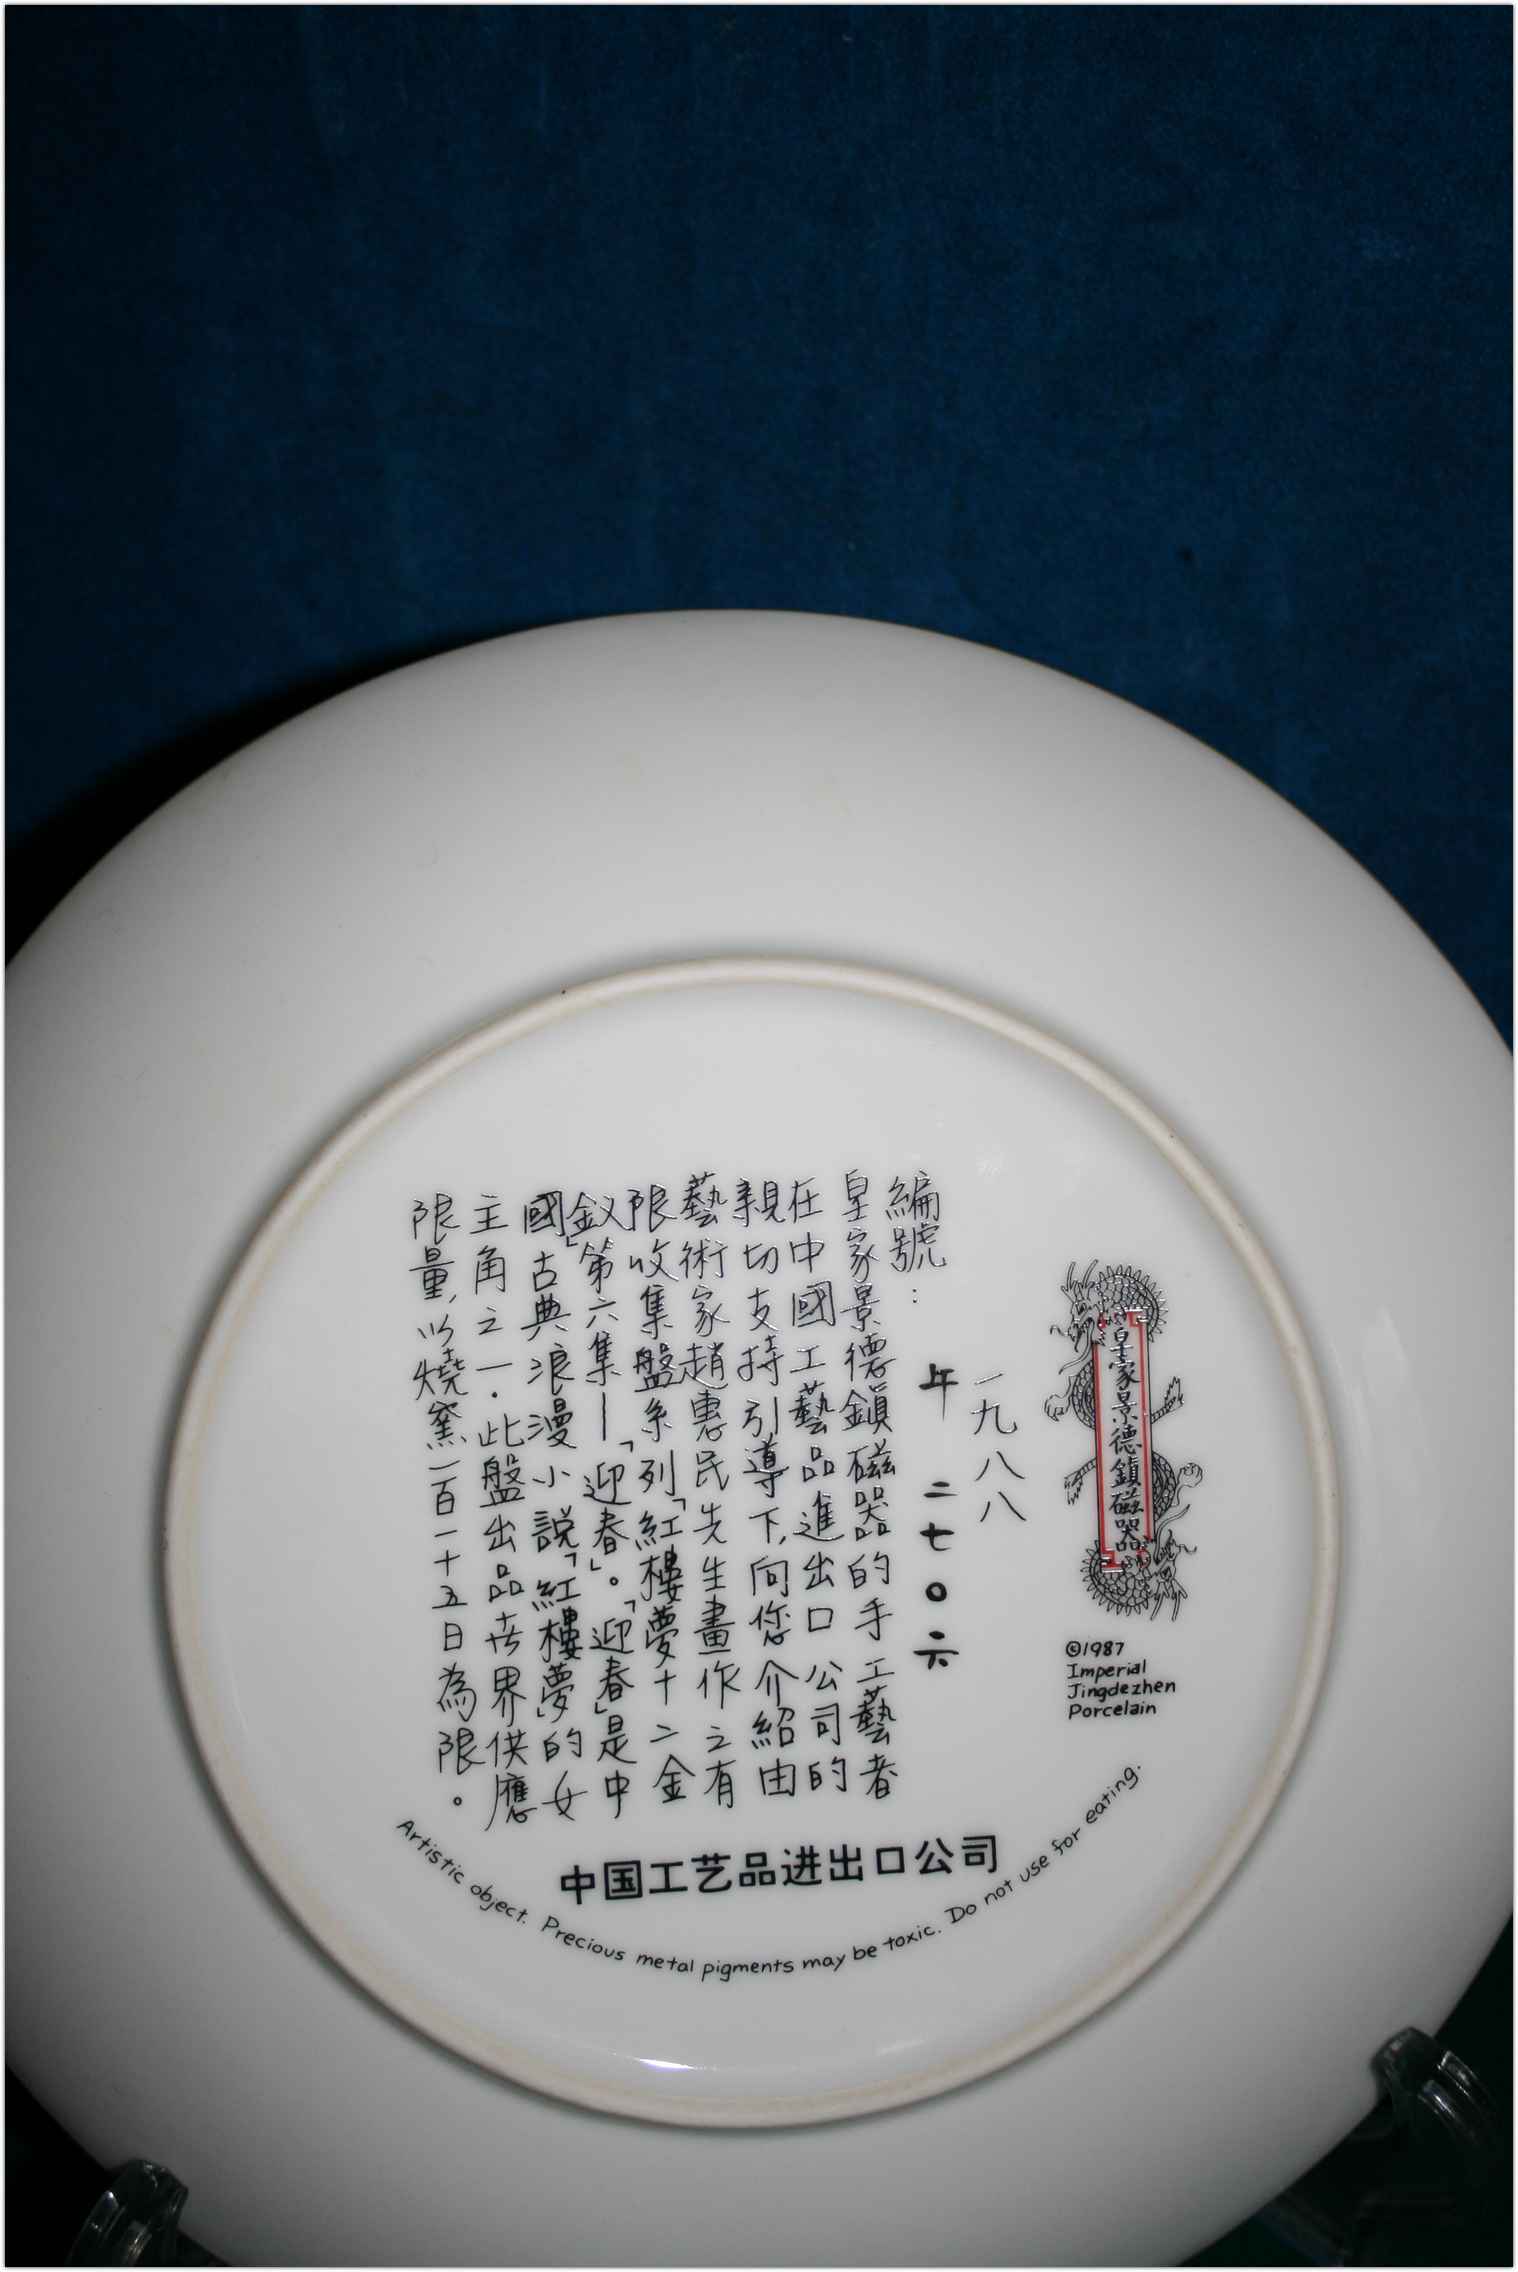 皇家景德鎮磁器
©1987
Imperial
Jingdezhen
Porcelain
一九八八
年 二七〇六
編號：
皇家景德鎮磁器的手工藝者
在中國工藝品進出口公司的
親切支持引導下，向您介紹由
藝術家趙惠民先生畫作之有
限收集盤系列「紅樓夢十二金
釵」第六集—「迎春」。「迎春」是中
國古典浪漫小說「紅樓夢」的女
主角之一．此盤出品世界供應
限量，以燒窯一百一十五日為限。
中国工艺品进出口公司
Artistic object. Precious metal pigments may be toxic. Do not use for eating.